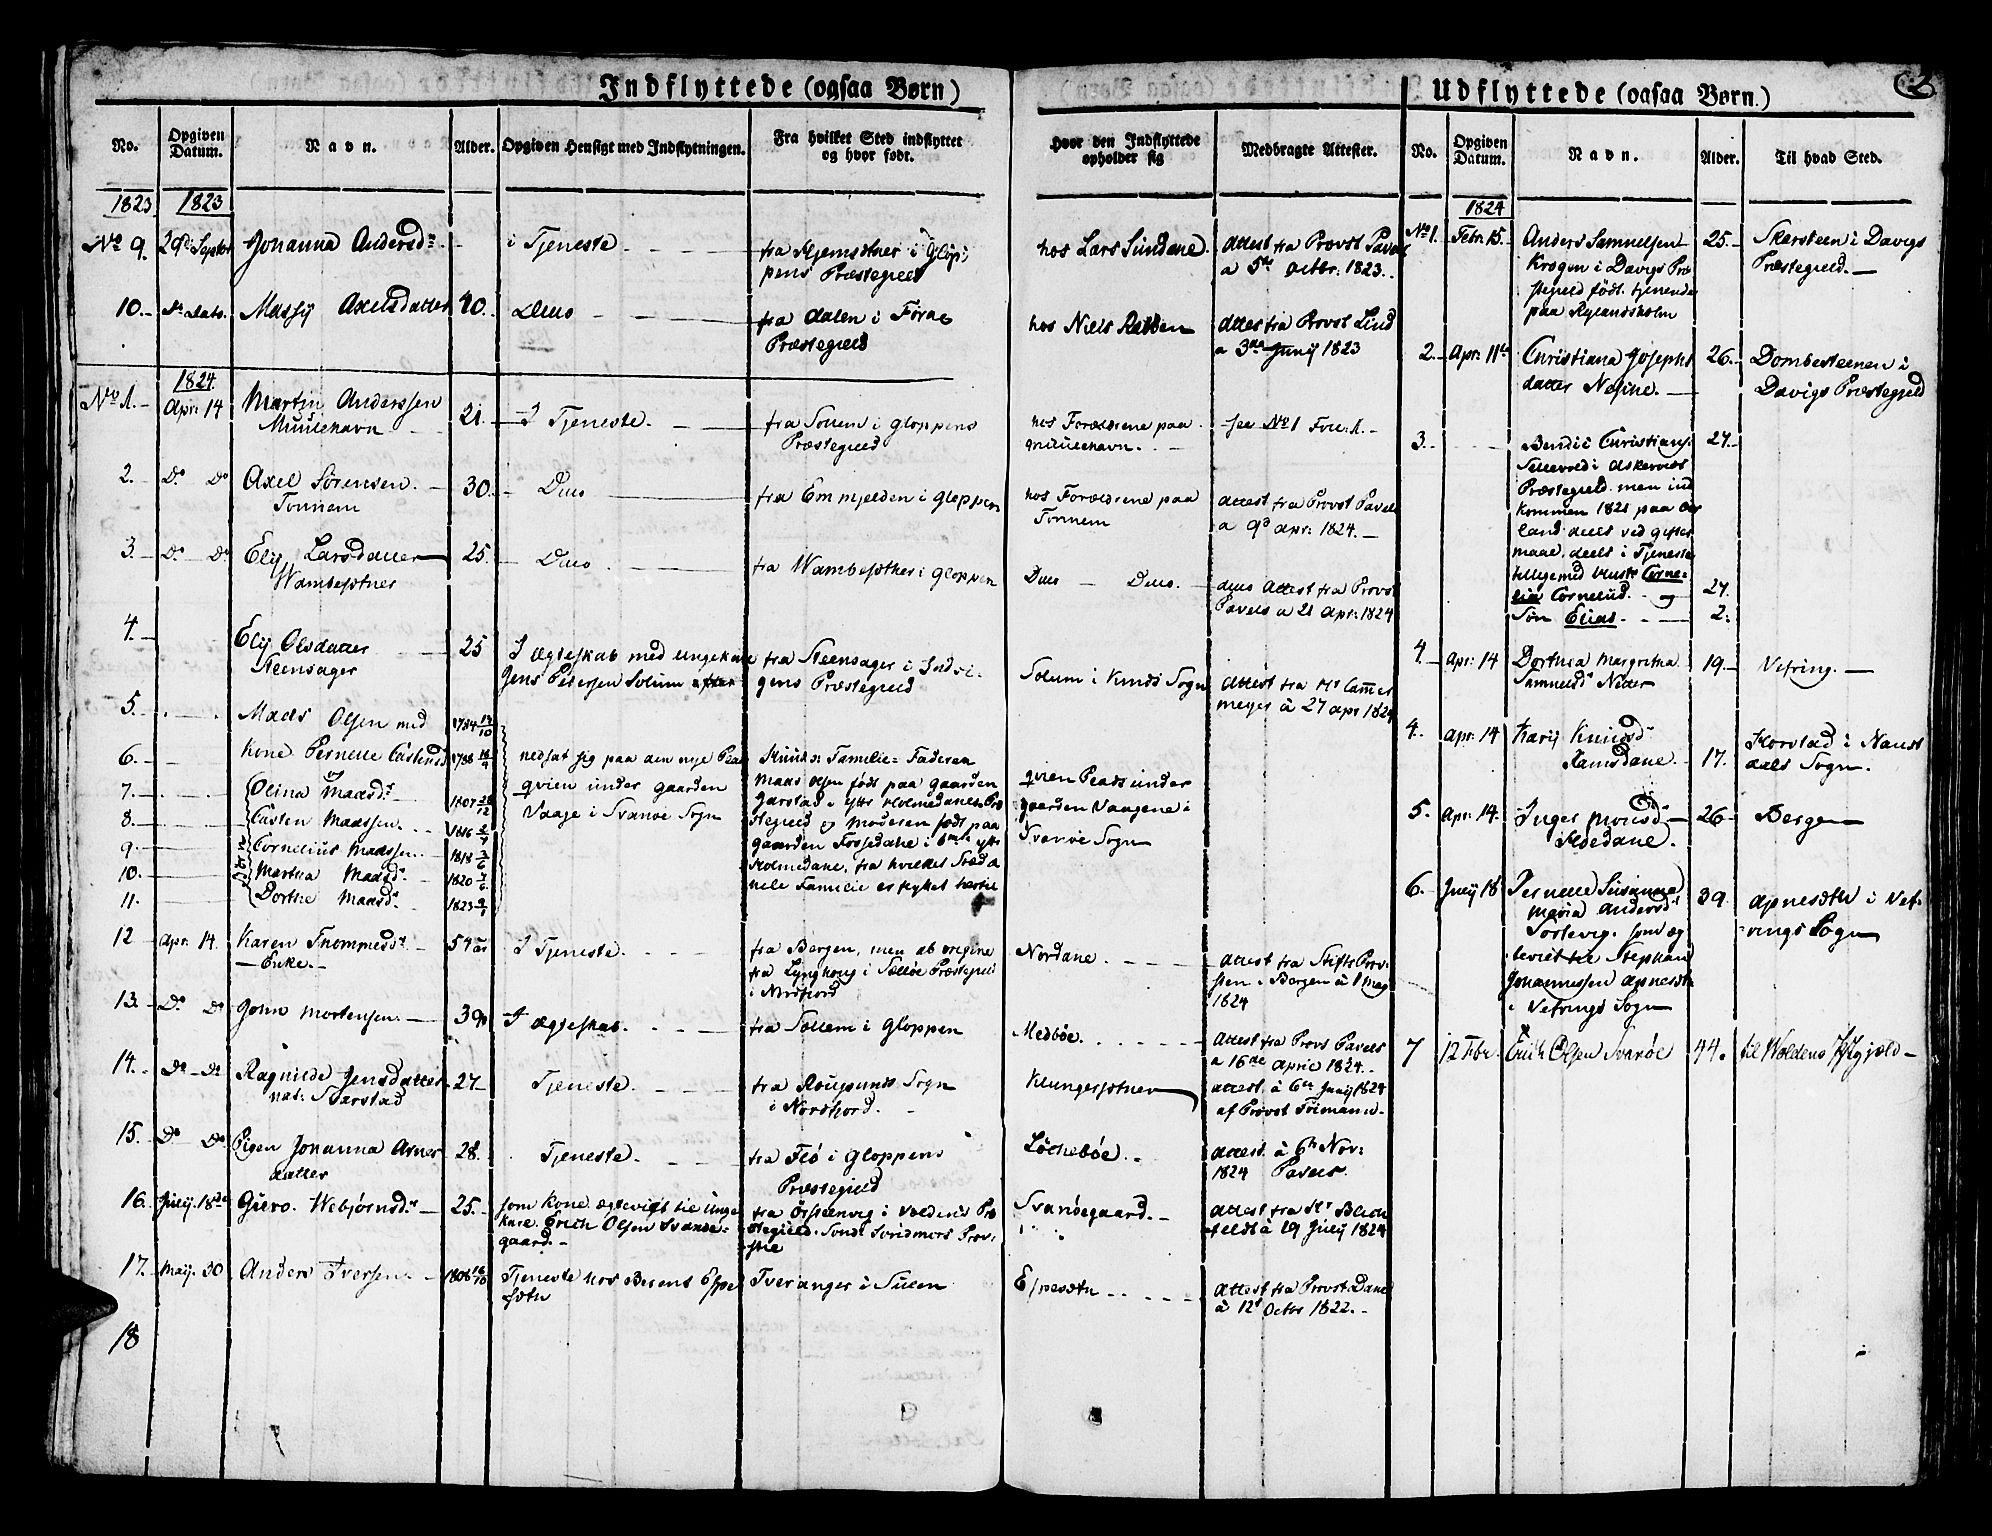 Indflyttede (ogsaa Børn)
No.
Opgiven Datum.
Navn.
Alder.
Opgiven Hensigt med Indflytningen.
Fra hvilket Sted indflyttet og hvor født.
Hvor den Indflyttede opholder sig
Medbragte Attester.
1823 1823
No 9. 29d Septbr Johanna Andersdr i Tjeneste
fra Hjemsæter i Glop-
pens Præstegield
hos Lars Sundane.
Attest fra Provst Pavels
a 5te Octbr: 1823.
10. Do Dato. Massy Axelsdatter 40. Dito
fra Dalen i Førde
Præstegield
hos Niels
Attest fra Provst Lind
a 3die Junij 1823
1824.
No 1. Apr: 14 Martin Anderssen
Muulehavn
21. I Tjeneste.
fra Solem i Gloppens
Præstegield
hos Forældrene paa
Muulehavn.
see No 1
2. Do Do Axel Sørensen
Tonnem
30. Dito
fra Emmjelden i Gloppen
hos Forældrene paa
Tonnem
Attest fra Provst Pavels
a 9d Apr: 1824.
3. Do Do Elij Larsdatter
Wambesætner
25. Dito
fra Wambesæther i Gloppen
Dito Dito.
dito Attest fra Provst
Pavels a 21 Apr: 1824
4. Elij Olsdatter
Steensager
25 I Ægteskab med ungekarl
Jens Pedersen Solum
fra Steensager i Indvi-
gens Præstegield
Solum i Kinds Sogn
Attest fra Hr Cammer
meyer à 27 apr 1824
5. Mads Olsen med 1784 13/10
6. Kone Pernelle Castensd 1788 18/4
7. Olina Madsdr 1807 28/12
8. Casten Madssen. 1816 2/4
9. Cornelius Madssen. 1818 3/6
10. Martha Madsdr 1820 7/6
11. Dorthe Madsdr. 1823 9/1
Børn
nedsat sig paa den nye Plads
qvien under gaarden
Vaage i Svanøe Sogn
Knuds Familie: Faderen
Mads Olsen født paa gaarden
Jarstad i yttr Holmedahls Præ
stegield og Moderen født paa
gaarden Fossedahl i bmte yttr
Holmedahl, fra hvilket Sted d
hele Familie er flyttet hertil
qvien Plads under
gaarden Vaagene i
Svanøe Sogn
12 Apr. 14. Karen Thommesdr
Enke.
54 aar I Tjeneste.
fra Bergen, men ab origine
fra Lynghoug i Selløe Præstegield
i Nordfiord
Nordane.
Attest fra Stifts Prov-
sten i Bergen à 1 May
1824
13. Do Do John Mortensen. 39 I Ægteskab.
fra Sollem i Gloppen
Medbøe.
Attest fra Provst Pavels
a 16de April 1824.
14. Do Do Ragnilde Jensdatter
nas: Starstad
27 Tjeneste.
fra Rougsunds Sogn
i Nordfjord.
Klungersætner
Attest. à 6te Junij 1824
af Provst Friman
15. Do Do Pigen Johanna Arnes
datter
28. Tjeneste.
fra Flø i Gloppens
Præstegield
Løchebøe.
Attest. à 6te Nov:
1824 Pavels.
16. Julij 18de Giero. Webjørnsdr 25.
som Kone ægteviet til unge
karl Erich Olsen Svanøe-
gaard.
fra Ørstenvig i Voldens Præ
stegield. Sønd Søndmørs Prov-
stie
Svanøegaard.
Attest fra Hr
à 19 Julij 1824
17. Maij. 30 Anders Iversen 1808 16/10
Tjeneste hos Berent Espe
sætn
Tveranger i Sulen
Espesætn
Attest fra Provst Dahl
à 12t Octbr 1822.
18
Udflyttede (ogsaa Børn.)
2
No.
Opgiven Datum.
Navn.
Alder.
Til hvad Sted.
1824
No 1. Febr. 15. Anders Samuelsen
Krogen i Davigs Præ
stegield født. tjenende
paa Rylandsholm
25. Skarsteen i Davigs
Præstegield.
2. Apr: 11te Christiana Josephs
datter Nesjne.
26. Dombesteenen i
Davigs Præstegjeld
3. Bendix Christians.
Tellevold i Askevolds
Præstegield. men ind
kommen 1821 paa
land deels ved gifter
maal, deels i Tjeneste
tilligemed hustr Corne-
lia Cornelid. og
Søn Elias.
27.
27.
2.
4. Apr: 14 Dorthea Margretha
Samuelsdr
19. Vefring.
4. Apr: 14 Karij Knudsdr
Ramsdahl
17. Horstad i Naust
dals Sogn.
5. Apr: 14. Inger Monsdr
26 Bergen
6. Julij 18 Pernelle Susanna
Maria Andersdr
som æg
teviet til Stephan
Johannessen Apnesæth
i Vefrings Sogn
39. Apnesæth i Vef-
rings Sogn
7 12 Febr. Erich Olsen Svanøe 44. til Woldens Prstgjeld